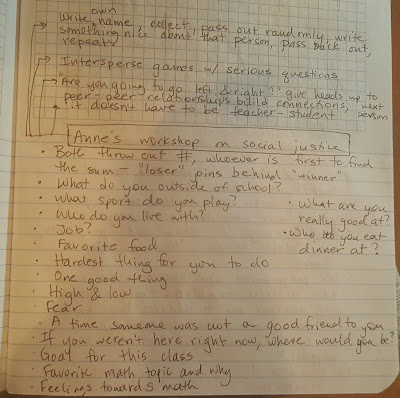 own
write name, collect, pass out randomly, write
something nice about that person, pass back out,
repeat!
Intersperse games w/ serious questions
"Are you going to go left & right?" give heads up to
peer-peer relationships build connections, next person
it doesn't have to be teacher-student
Anne's workshop on social justice
• Both throw out #, whoever is first to find
the sum – "loser" joins behind "winner"
• What do you outside of school?
• What sport do you play?
• Who do you live with?
• Job?
• Favorite food
• What are you
really good at?
• Who do you eat
dinner at?
• Hardest thing for you to do
• One good thing
• High & low
• Fear
• A time someone was not a good friend to you
• If you weren't here right now, where would you be?
• Goal for this class
• Favorite math topic and why
• Feelings towards math